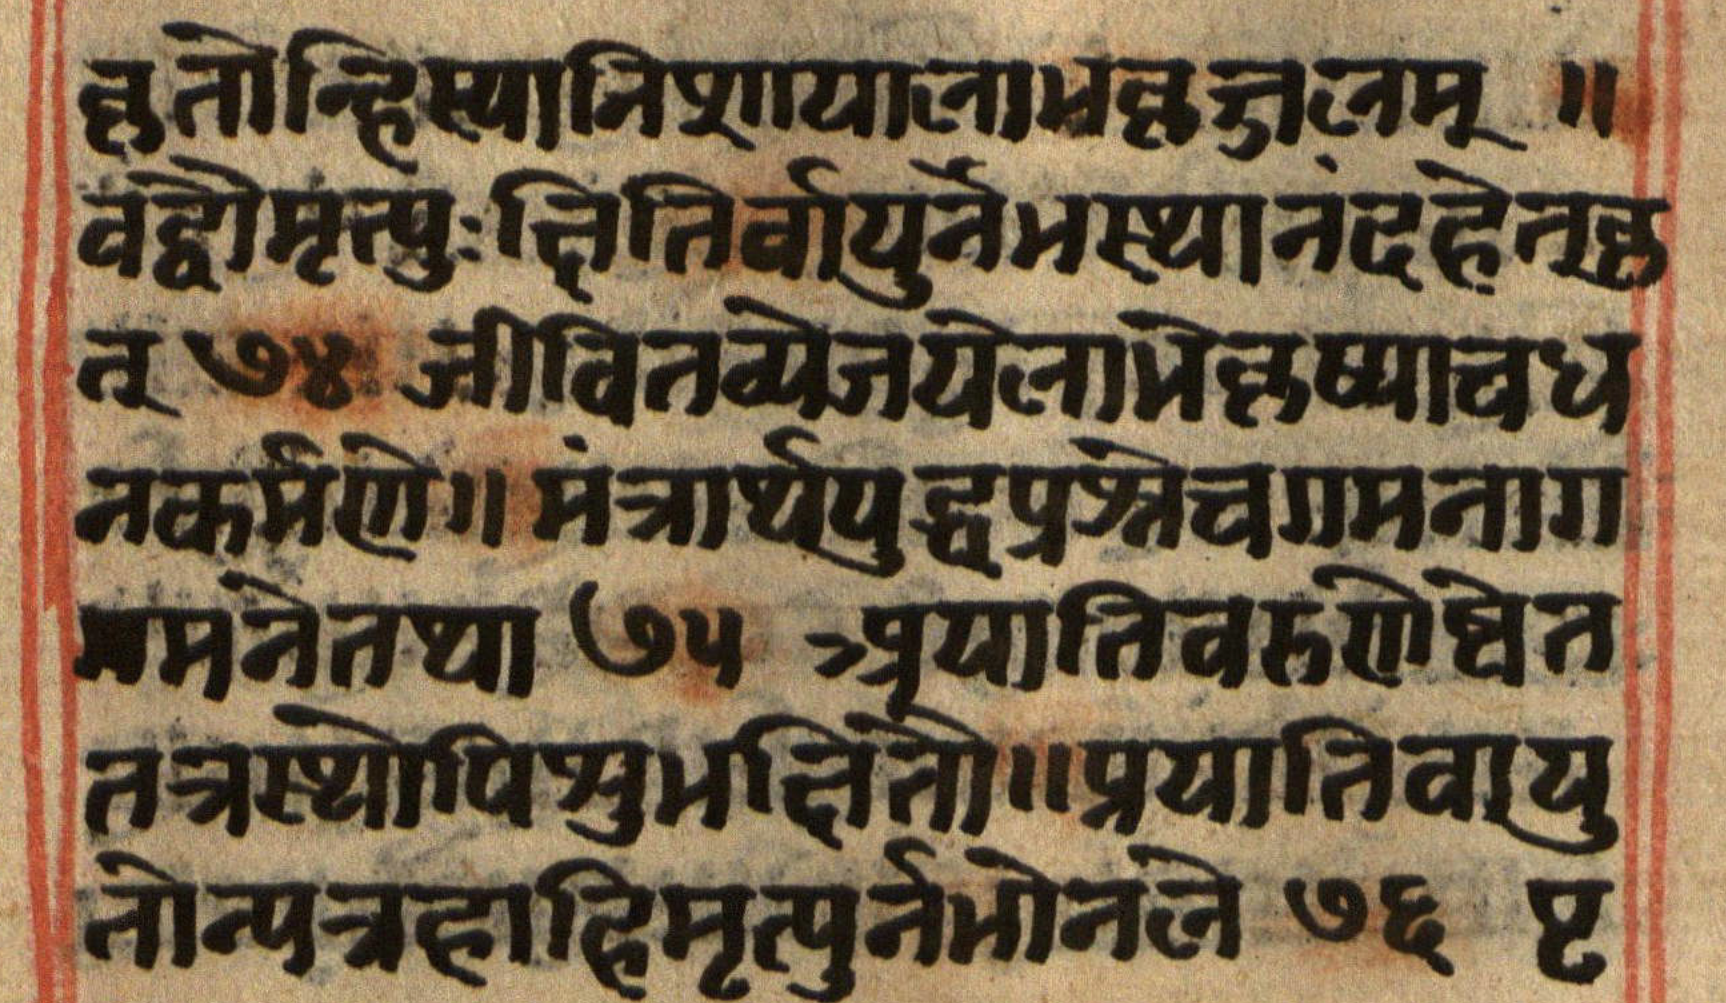 कृतोन्हिस्यानिशायालाभकृज्जलम् ॥
वह्नौमृत्युःक्षितिर्वायुर्नेभस्थानंदहेत्क्क
त् ७४ जीवितव्येजयेलाभेकृष्याचध
नकर्मणे॥ मंत्रार्थयुद्धप्रश्नेचगमनाग
ममनेतथा ७५ प्रयातिवरुणेद्येत
तत्रस्थोपिशुभक्षितौ॥प्रयातिवायु
तोन्यत्रहाहिमृत्युर्नभोनले ७६ पृ